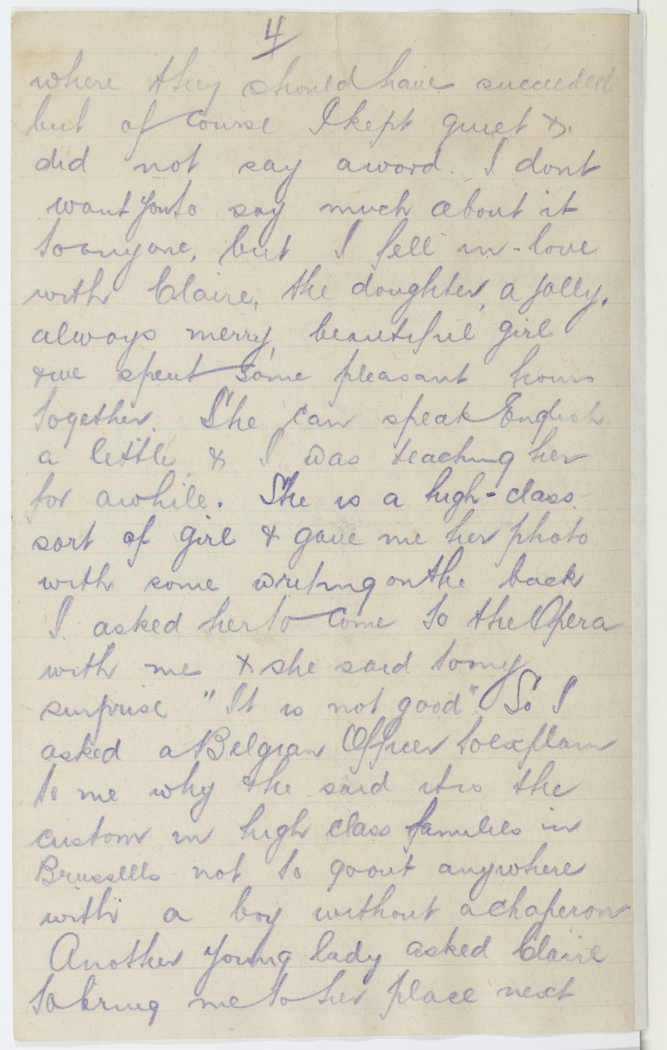 4
where they should have succeeded
but of course I kept quiet &
did not say a word. I dont
want you to say much about it
to anyone, but I fell in-love
with Claire, the daughter, a jolly,
always merry, beautiful girl
& we spent some pleasant hours
together. She can speak English
a little & I was teaching her
for awhile. She is a high-class
sort of girl & gave me her photo
with some writing on the back
I asked her to come to the Opera
with me & she said to my
surprise "It is not good" So I
asked a Belgian Officer to explain
to me why & he said it is the
custom in high class families in
Brussells not to go out anywhere
with a boy without a chaperon
Another young lady asked Claire
to bring me to her place next